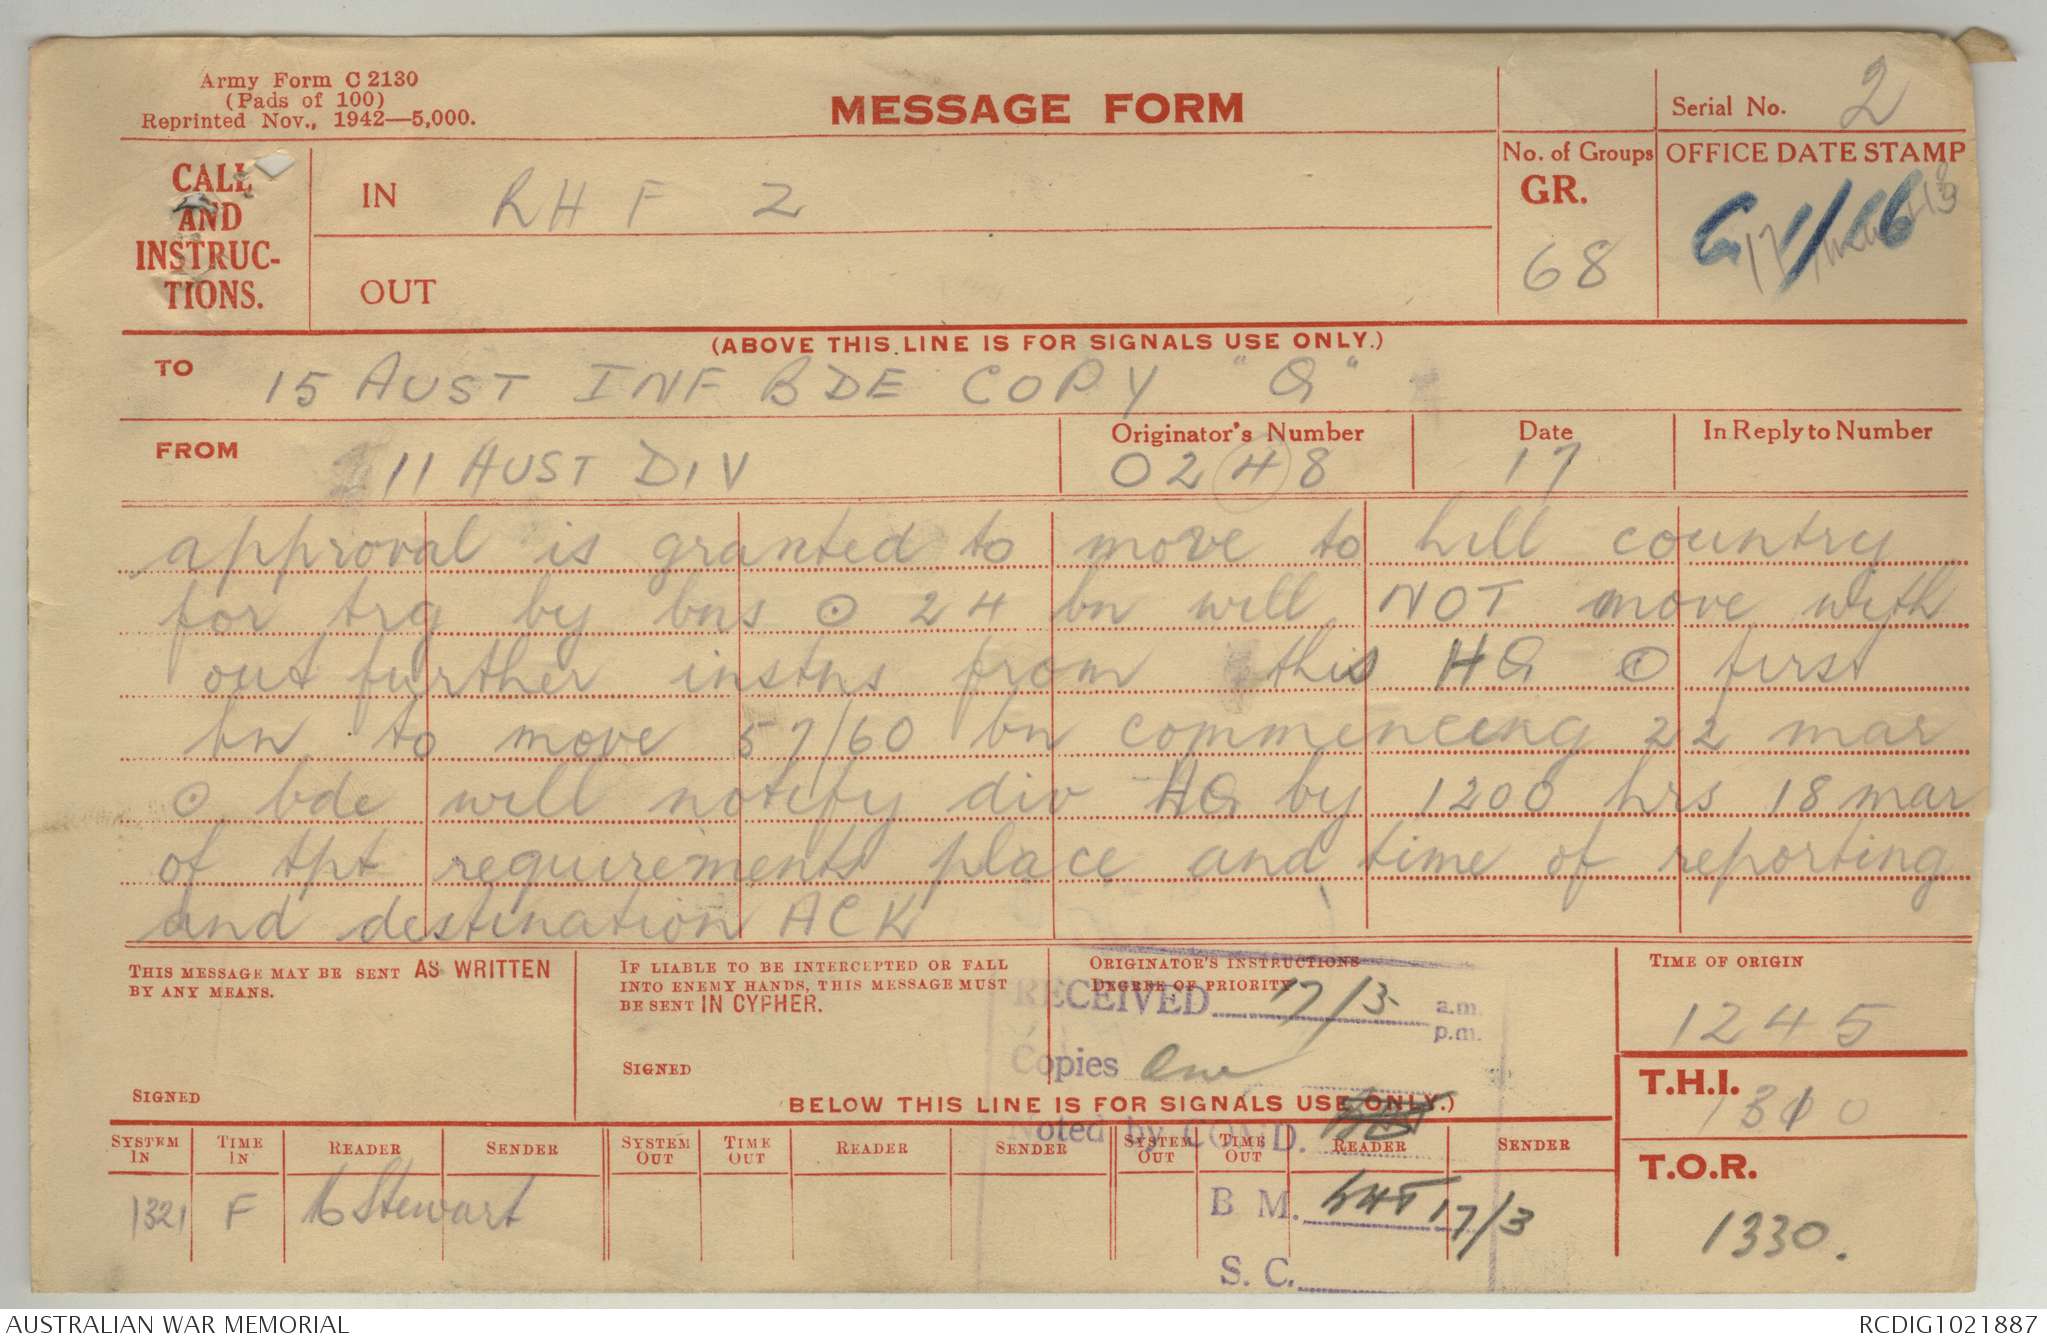 Army Form C 2130
(Pads of 100)
Reprinted Nov., 1942—5,000.
MESSAGE FORM
Serial No. 2
CALL AND INSTRUC-TIONS.
IN RHF 2
OUT
No. of Groups
GR.
68
OFFICE DATE STAMP
(ABOVE THIS LINE IS FOR SIGNALS USE ONLY.)
TO 15 AUST INF BDE COPY "G"
FROM 11 AUST DIV
Originator's Number
0248
Date
17
In Reply to Number
approval is granted to move to hill country
for trg by bns ⊙ 24 bn will NOT move with
out further instns from this HQ ⊙ first
bn to move 57/60 bn commencing 22 mar
⊙ bde will notify div HQ by 1200 hrs 18 mar
of tpt requirements place and time of reporting
and destination ACK
THIS MESSAGE MAY BE SENT AS WRITTEN
BY ANY MEANS.
SIGNED
IF LIABLE TO BE INTERCEPTED OR FALL
INTO ENEMY HANDS, THIS MESSAGE MUST
BE SENT IN CYPHER.
SIGNED
ORIGINATOR'S INSTRUCTIONS
DEGREE OF PRIORITY
RECEIVED 17/3 a.m.
p.m.
Copies One
Noted by COMD.
B M. 17/3
S. C.
TIME OF ORIGIN
1245
T.H.I.
1310
T.O.R.
1330.
BELOW THIS LINE IS FOR SIGNALS USE ONLY.)
SYSTEM IN TIME IN READER SENDER SYSTEM OUT TIME OUT READER SENDER SYSTEM OUT TIME OUT READER SENDER
1321 F Stewart
AUSTRALIAN WAR MEMORIAL
RCDIG1021887